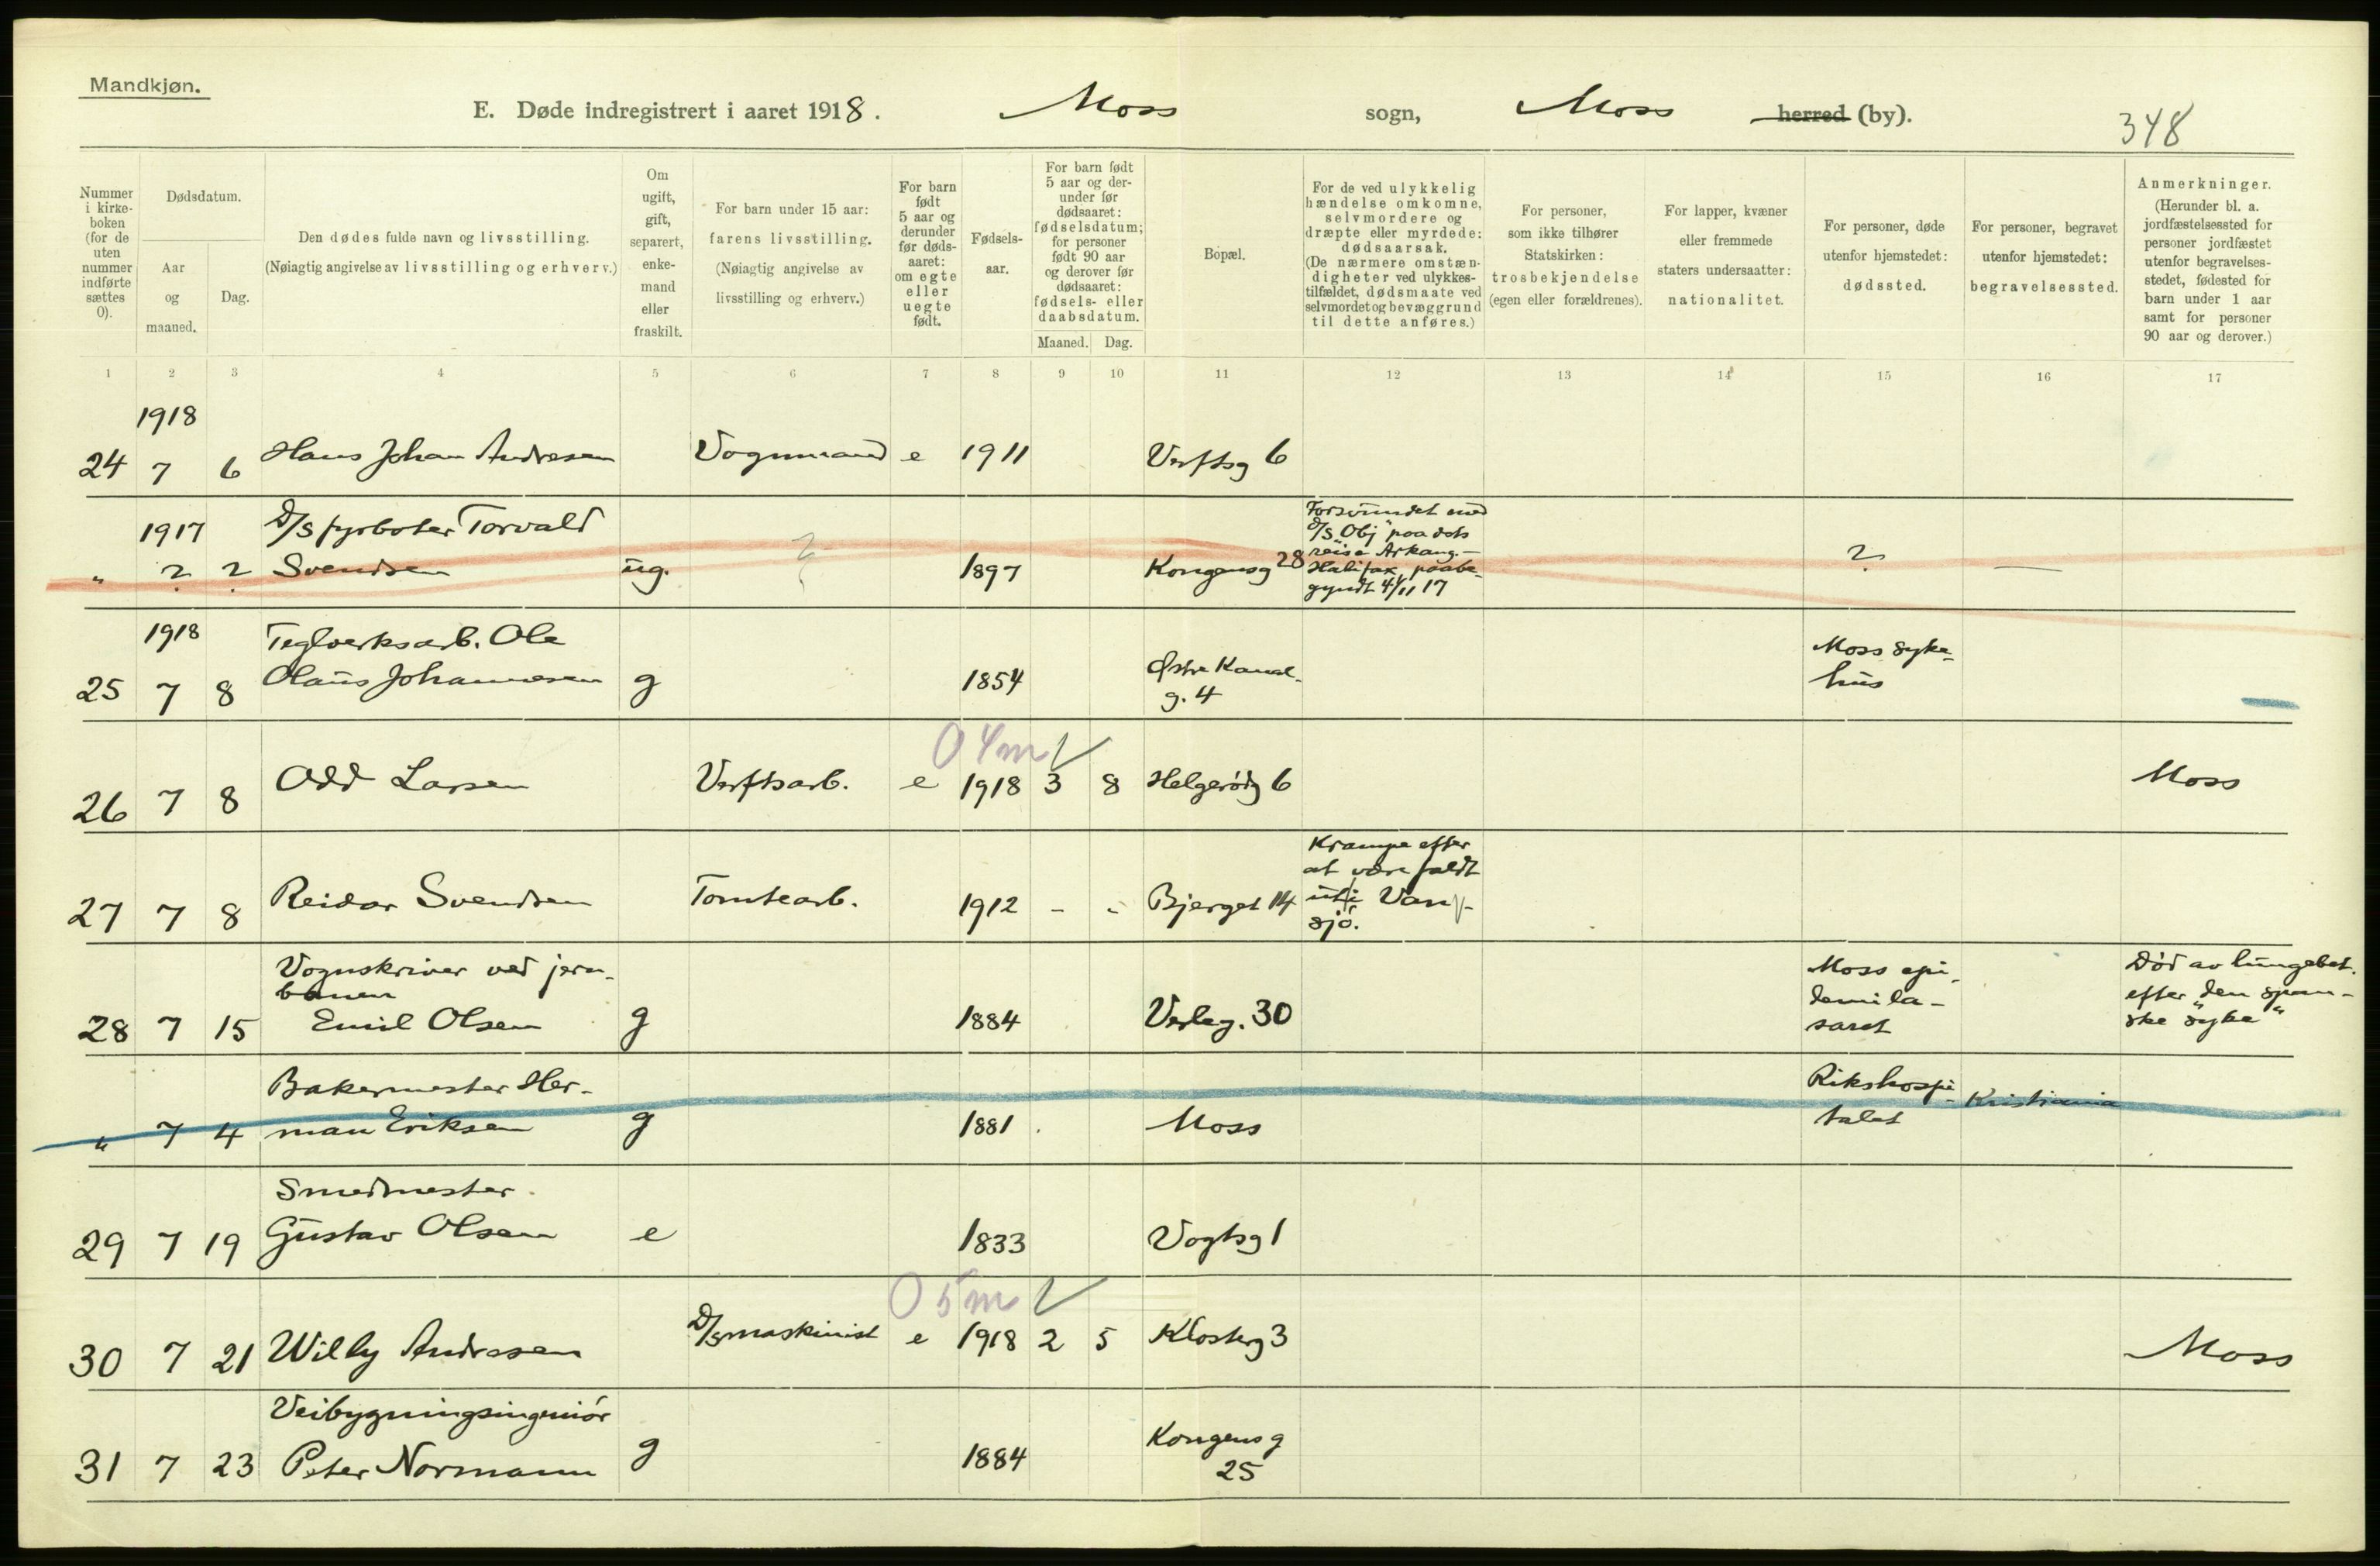 Mandkjøn.
E. Døde indregistrert i aaret 1918. Moss sogn, Moss herred (by).
348
Nummer i kirke- boken (for de uten nummer indførte sættes 0).
Dødsdatum.
Aar og maaned.
Dag.
Den dødes fulde navn og livsstilling.
(Nøiagtig angivelse av livsstilling og erhverv.)
Om ugift, gift, separert, enke- mand eller fraskilt.
For barn under 15 aar:
farens livsstilling.
(Nøiagtig angivelse av
livsstilling og erhverv.)
For barn født 5 aar og derunder før døds- aaret: om egte eller uegte født.
Fødsels- aar.
For barn født 5 aar og der- under før dødsaaret: fødselsdatum; for personer født 90 aar og derover før dødsaaret: fødsels- eller daabsdatum.
Maaned. Dag.
Bopæl.
For de ved ulykkelig hændelse omkomne, selvmordere og dræpte eller myrdede: dødsaarsak.
(De nærmere omstæn- digheter ved ulykkes- tilfældet, dødsmaate ved selvmordet og bevæggrund til dette anføres.)
For personer, som ikke tilhører Statskirken: trosbekjendelse (egen eller forældrenes).
For lapper, kvæner eller fremmede staters undersaatter: nationalitet.
For personer, døde utenfor hjemstedet: dødssted.
For personer, begravet utenfor hjemstedet: begravelsessted.
Anmerkninger.
(Herunder bl. a. jordfæstelsessted for personer jordfæstet utenfor begravelses- stedet, fødested for barn under 1 aar samt for personer 90 aar og derover.)
1 2 3 4 5 6 7 8 9 10 11 12 13 14 15 16 17
1918
24 7 6 Hans Johan Andresen Vognmand e 1911 Verftsg 6
1917 D/S fyrbøter Torvald
" ? ? Svendsen ug. ? 1897 Kongensg 28 ? —
Forsvundet med
D/S "Obj" paa dets
reise Arkang.-
Halifax, paabe-
gyndt 4/11 17
1918 Teglverksarb. Ole
25 7 8 Olaus Johannesen g 1854 Østre Kanal-
g. 4
Moss syke-
hus
0 4m
26 7 8 Odd Larsen Verftsarb. e 1918 3 8 Helgerødg 6 Moss
27 7 8 Reidar Svendsen Tomtearb. 1912 - - Bjerget 14
Krampe efter
at være faldt
uti Van-
sjø.
Vognskriver ved jern-
banen
28 7 15 Emil Olsen g 1884 Verleg. 30
Moss epi-
demila-
saret
Død av lungebet.
efter "den span-
ske syke"
Bakermester Her-
" 7 4 man Eriksen g 1881 Moss
Rikshospi-
talet
Kristiania
Smedmester
29 7 19 Gustav Olsen e 1833 Vogtsg 1
0 5m
30 7 21 Willy Andresen D/S maskinist e 1918 2 5 Klosterg 3 Moss
Veibygningsingeniør
31 7 23 Peter Normann g 1884 Kongensg
25